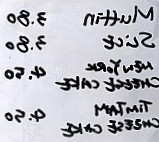 Muffin 3.80
Slice 3.80
NEW YORK
CHEESE CAKE 4.50
TIMTAM
CHEESE CAKE 4.50